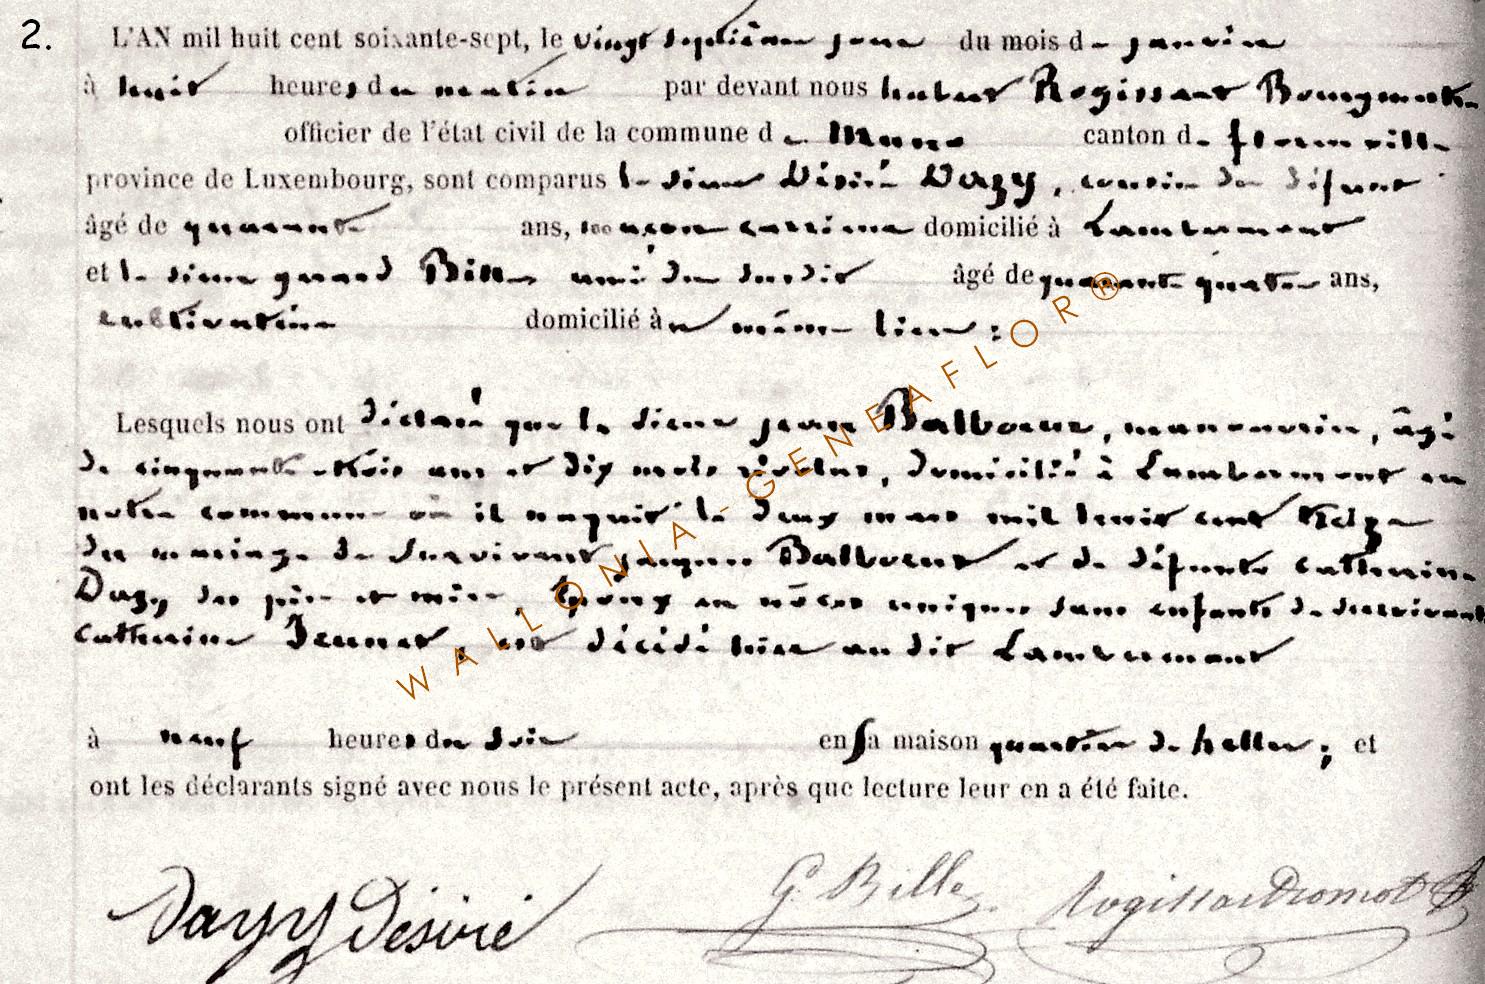 2.
L'AN mil huit cent soixante-sept, le vingt septième jour du mois de janvier
à huit heures du matin par devant nous hubert Rogissart Bourgmestre
officier de l'état civil de la commune de Muno canton de florenville
province de Luxembourg, sont comparus le sieur Désiré Dazy, cousin du défunt
âgé de quarante ans, maçon carrieur domicilié à Lambermont
et le sieur gérard Bille ami du susdit âgé de quarante quatre ans,
cultivateur domicilié à u même lieu ;
Lesquels nous ont déclaré que le sieur jean Balboeur, manoeuvrier, âgé
de cinquante-trois ans et dix mois révolus, domicilié à Lambermont en
notre commune où il naquit le deux mars mil huit cent treize
du mariage de survivant jacques Balboeur et de défunte catherine
Dazy ses père et mère, époux en nôces uniques sans enfants de survivante
catherine Jeunet, est décédé hier au dit Lambermont
à neuf heures du soir en sa maison quartier de haller ; et
ont les déclarants signé avec nous le présent acte, après que lecture leur en a été faite.
Dazy Désiré G. Bille Rogissart Dromot
WALLONIA-GENEAFLOR®